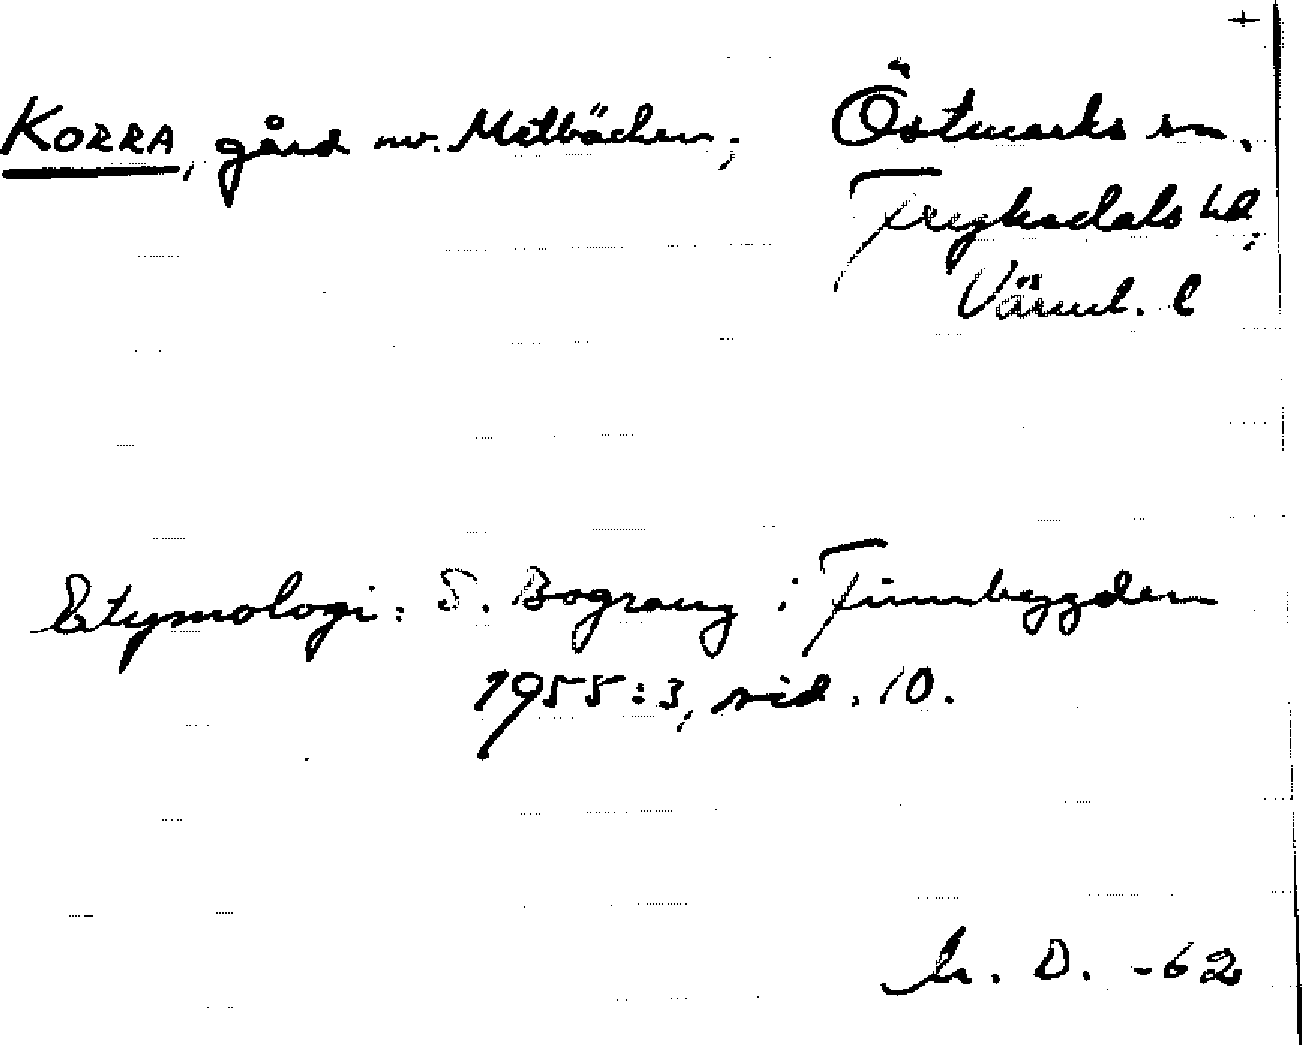 +
KORRA, gård nv. Mattbäcken, Östmarks sn,
Fryksdals hd,
Värml. l
Etymologi: S. Bograng i Finnbygden
1955:3, sid. 10.
D. -62